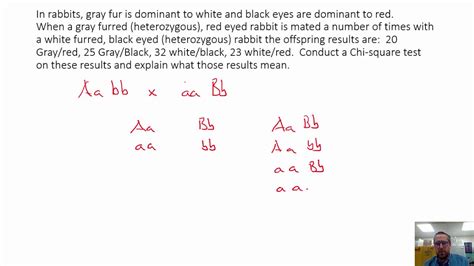 In rabbits, gray fur is dominant to white and black eyes are dominant to red.
When a gray furred (heterozygous), red eyed rabbit is mated a number of times with
a white furred, black eyed (heterozygous) rabbit the offspring results are:  20
Gray/red, 25 Gray/Black, 32 white/black, 23 white/red.  Conduct a Chi-square test
on these results and explain what those results mean.
Aa bb x aa Bb
Aa Bb Aa Bb
aa bb Aa bb
aa Bb
aa.